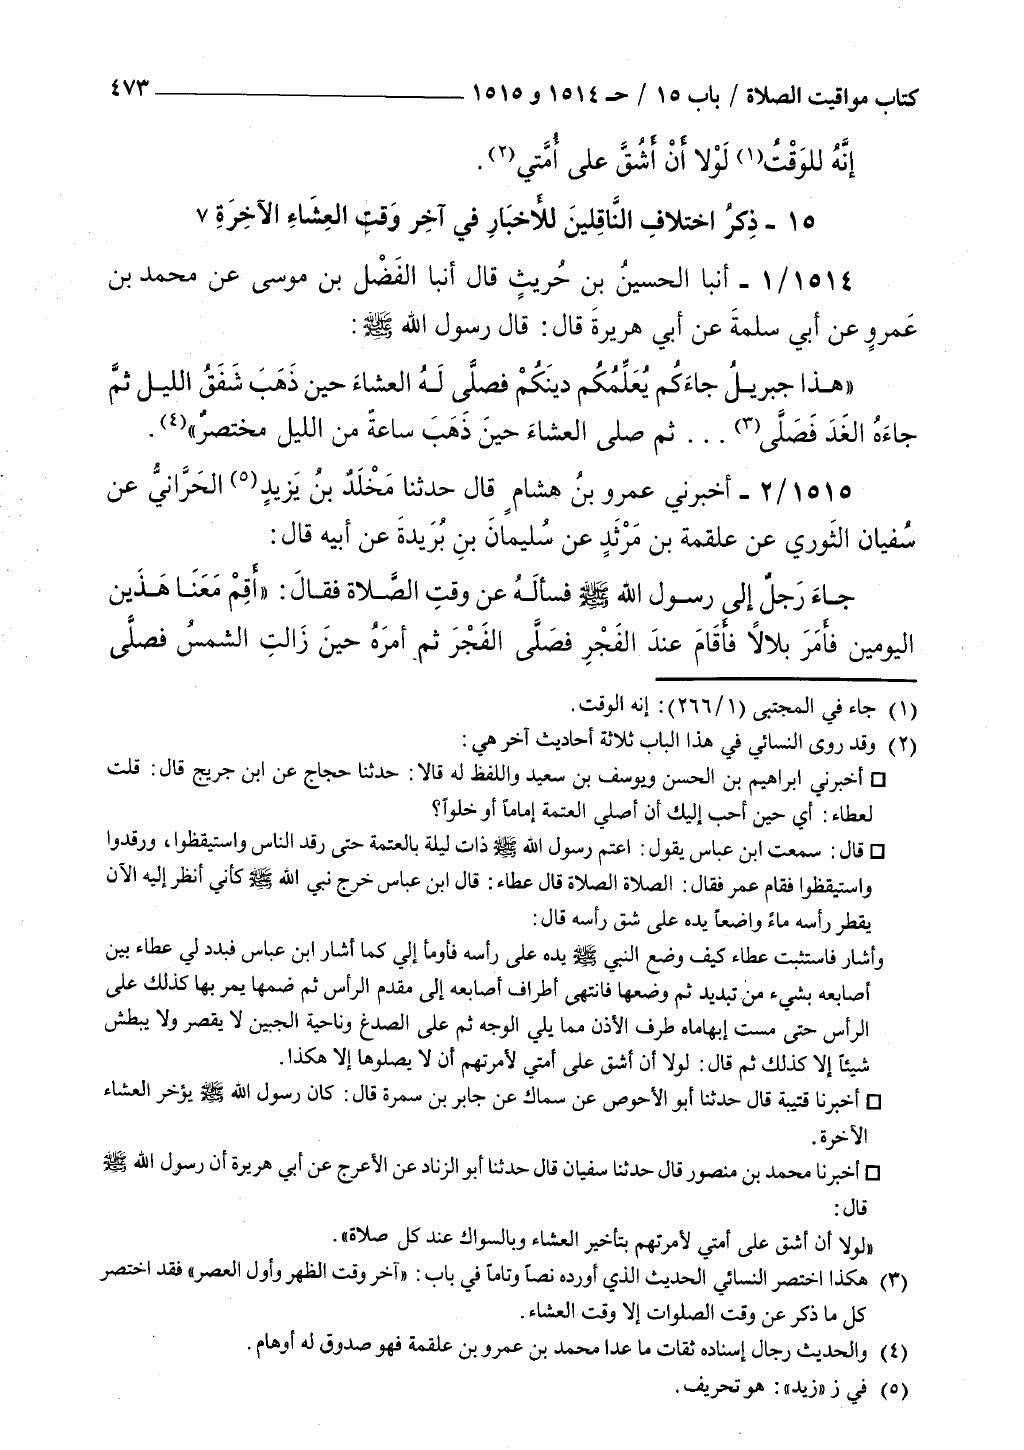 كتاب مواقيت الصلاة / باب ١٥ / حـ ١٥١٤ و ١٥١٥ ٤٧٣
إنَّهُ للوَقْتُ(١) لَوْلا أَنْ أَشُقَّ على أُمَّتي(٢).
١٥ - ذِكرُ اختلافِ النَّاقِلينَ للأَخبَارِ في آخِر وَقتِ العِشَاءِ الآخِرَةِ ٧
١/١٥١٤ - أنبا الحسينُ بن حُريثٍ قال أنبا الفَضْل بن موسى عن محمد بن
عَمروٍ عن أبي سلمةَ عن أبي هريرةَ قال: قال رسول الله ﷺ:
«هـذا جبريـلُ جاءَكُم يُعَلِّمُكُم دينَكُمْ فصلَّى لَـهُ العشاءَ حين ذَهَبَ شَفَقُ الليـل ثمَّ
جاءَهُ الغَدَ فَصَلَّى(٣) ... ثم صلى العشاءَ حينَ ذَهَبَ ساعةً من الليل مختصرٌ»(٤).
٢/١٥١٥ - أخبرني عمرو بنُ هشامٍ قال حدثنا مَخْلَدٌ بنُ يَزيدٍ(٥) الحَرَّانيُّ عن
سُفيان الثَوري عن علقمة بن مَرْثَدٍ عن سُليمانَ بنِ بُرَيدةَ عن أبيه قال:
جـاءَ رَجلٌ إلى رسـول الله ﷺ فسألَـهُ عن وقتِ الصَّـلاة فقـالَ: «أَقِمْ مَعَنَـا هَـذَين
اليومين فأَمَرَ بلالاً فأَقَامَ عندَ الفَجْرِ فصَلَّى الفَجْرَ ثم أمرَهُ حينَ زَالتِ الشمسُ فصلَّى
(١) جاء في المجتبى (٢٦٦/١): إنه الوقت.
(٢) وقد روى النسائي في هذا الباب ثلاثة أحاديث آخر هي:
□ أخبرني ابراهيم بن الحسن ويوسف بن سعيد واللفظ له قالا: حدثنا حجاج عن ابن جريج قال: قلت
لعطاء: أي حين أحب إليك أن أصلي العتمة إماماً أو خلواً؟
□ قال: سمعت ابن عباس يقول: اعتم رسول الله ﷺ ذات ليلة بالعتمة حتى رقد الناس واستيقظوا، ورقدوا
واستيقظوا فقام عمر فقال: الصلاة الصلاة قال عطاء: قال ابن عباس خرج نبي الله ﷺ كأني أنظر إليه الآن
يقطر رأسه ماءً واضعاً يده على شق رأسه قال:
وأشار فاستثبت عطاء كيف وضع النبي ﷺ يده على رأسه فأومأ إلي كما أشار ابن عباس فبدد لي عطاء بين
أصابعه بشيء من تبديد ثم وضعها فانتهى أطراف أصابعه إلى مقدم الرأس ثم ضمها يمر بها كذلك على
الرأس حتى مست إبهاماه طرف الأذن مما يلي الوجه ثم على الصدغ وناحية الجبين لا يقصر ولا يبطش
شيئاً إلا كذلك ثم قال: لولا أن أشق على أمتي لأمرتهم أن لا يصلوها إلا هكذا.
□ أخبرنا قتيبة قال حدثنا أبو الأحوص عن سماك عن جابر بن سمرة قال: كان رسول الله ﷺ يؤخر العشاء
الآخرة.
□ أخبرنا محمد بن منصور قال حدثنا سفيان قال حدثنا أبو الزناد عن الأعرج عن أبي هريرة أن رسول الله ﷺ
قال:
«لولا أن أشق على أمتي لأمرتهم بتأخير العشاء وبالسواك عند كل صلاة».
(٣) هكذا اختصر النسائي الحديث الذي أورده نصاً وتاماً في باب: «آخر وقت الظهر وأول العصر» فقد اختصر
كل ما ذكر عن وقت الصلوات إلا وقت العشاء.
(٤) والحديث رجال إسناده ثقات ما عدا محمد بن عمرو بن علقمة فهو صدوق له أوهام.
(٥) في ز «زيد»: هو تحريف.